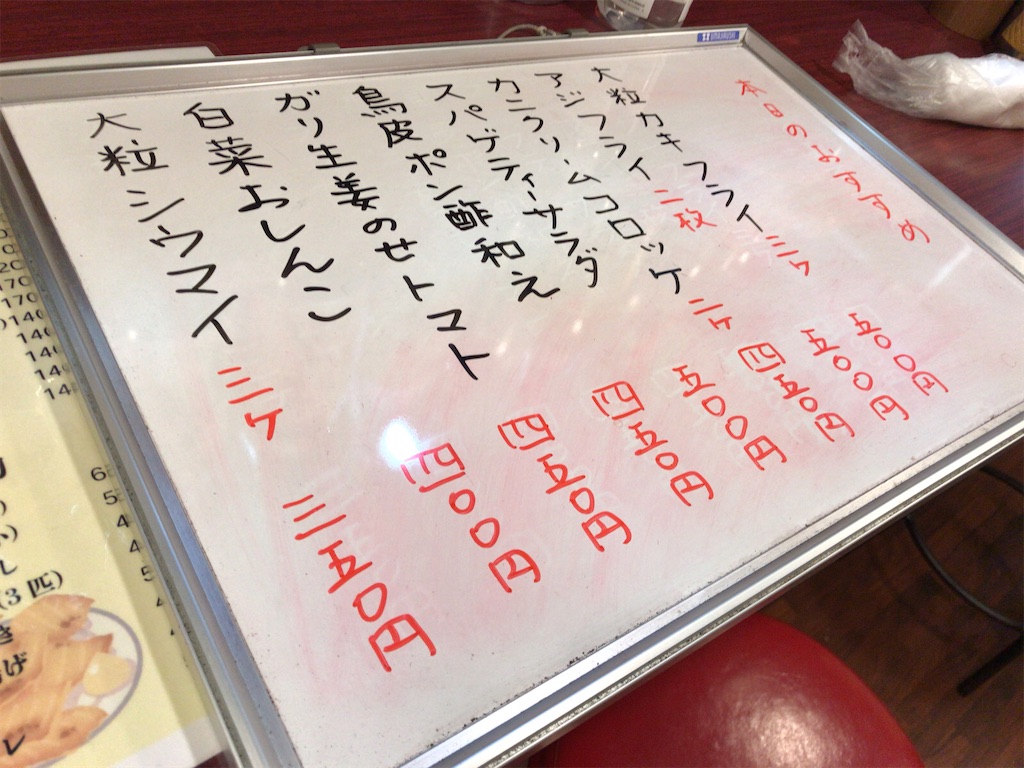 本日のおすすめ
大粒カキフライ 三ケ 五〇〇円
アジフライ 二枚 五〇〇円
カニクリームコロッケ 二ケ 四五〇円
スパゲティーサラダ 五〇〇円
鳥皮ポン酢和え 四五〇円
ガリ生姜のせトマト 四五〇円
白菜おしんこ 四〇〇円
大粒シウマイ 三ケ 三五〇円
170
170
140
140
140
(3匹)